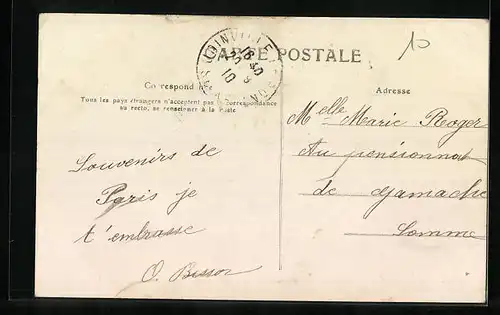 10
CARTE POSTALE
Correspond
Tous les pays étrangers n'acceptent pas la correspondance
au recto, se renseigner à la Poste
Adresse
Souvenirs de
Paris je
t'embrasse
O. Bisson
Melle Marie Roger
Au pensionnat
de Gamache
Somme